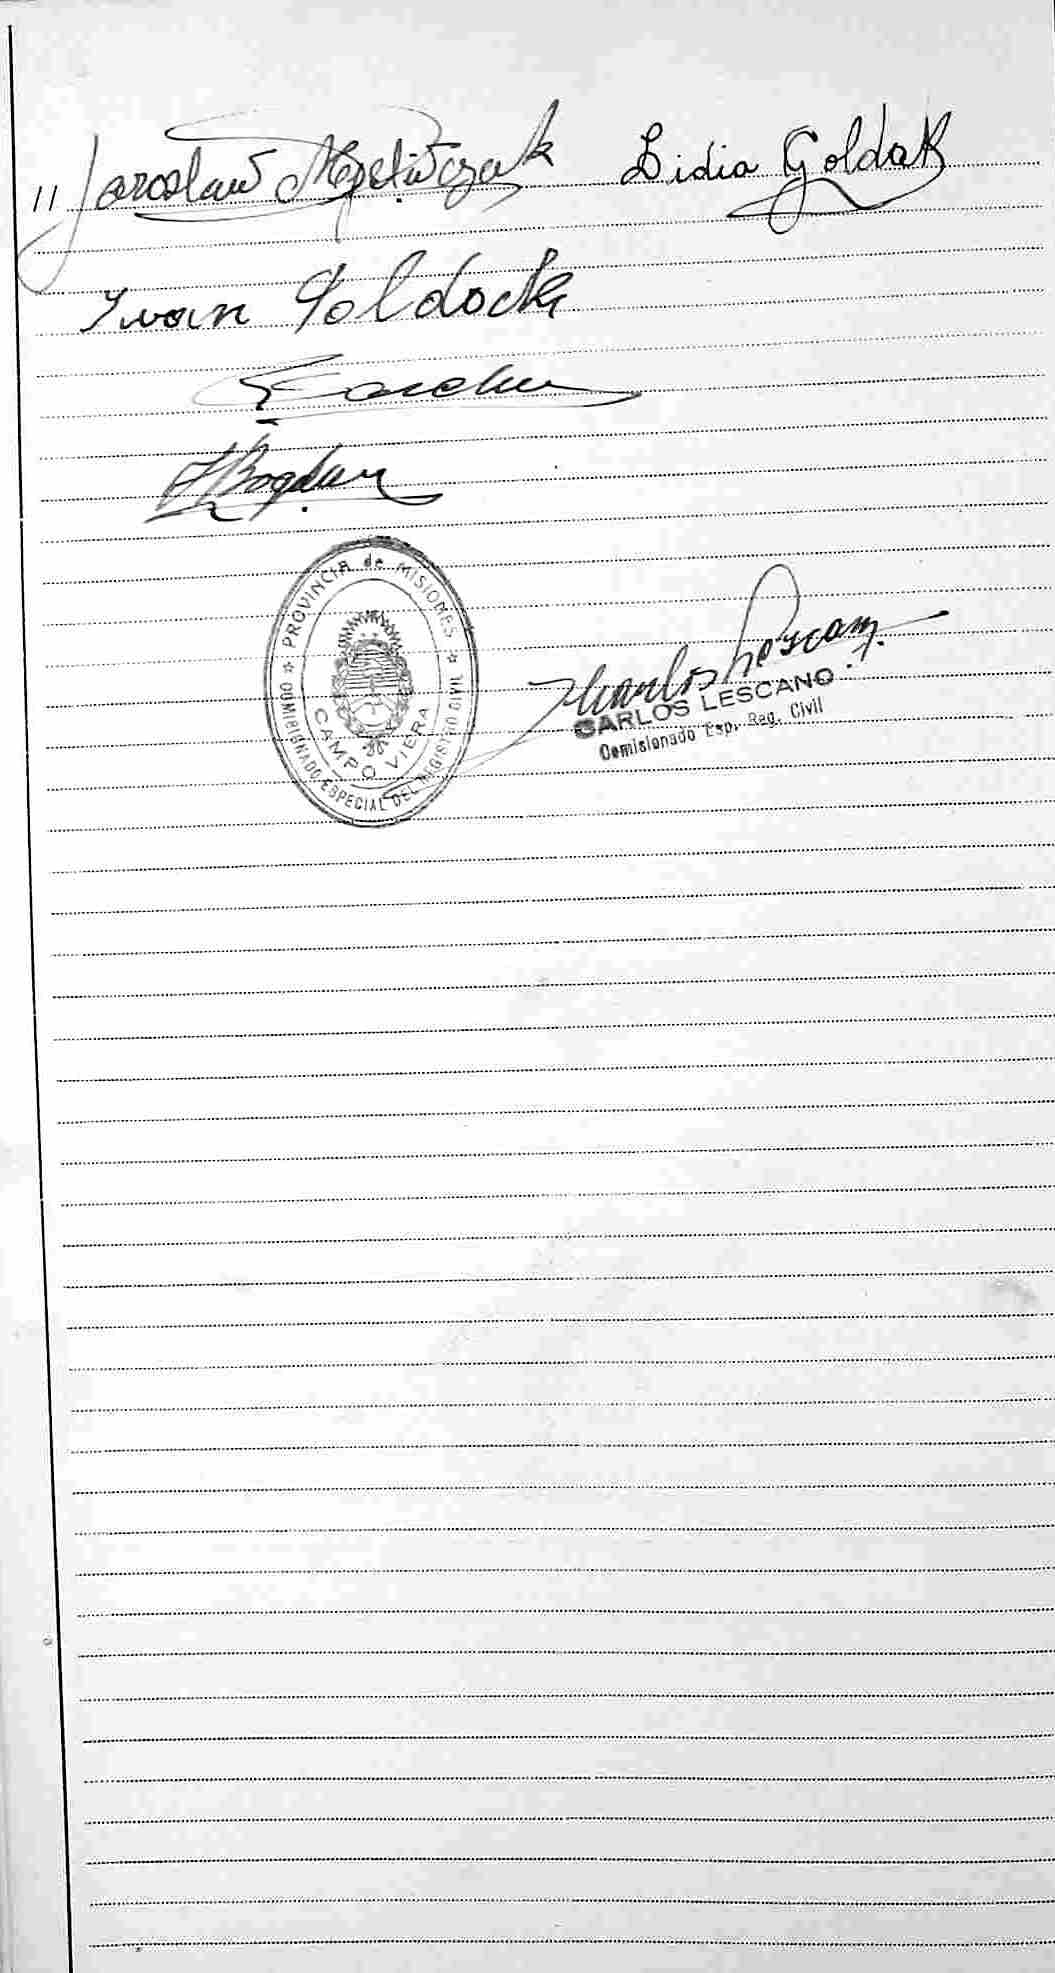 " Jaroslaw Lidia Goldak
Ivan Goldock
Bogdan
PROVINCIA de MISIONES
COMISIONADO ESPECIAL DEL REGISTRO CIVIL
CAMPO VIERA
Carlos Lescano
CARLOS LESCANO
Comisionado Esp. Reg. Civil